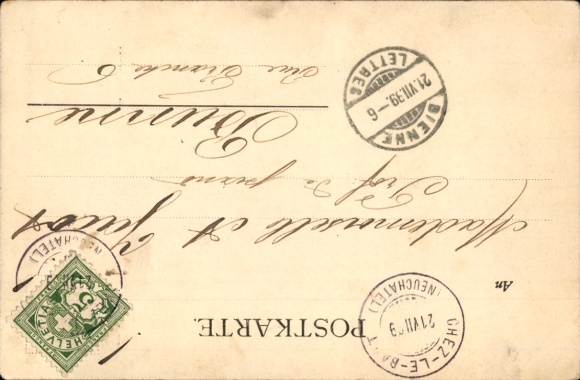 POSTKARTE.
CHEZ-LE-BART
21 VII 99
(NEUCHATEL)
(NEUCHATEL)
HELVETIA
5
An
Mademoiselle A
Prof de
Bienne
Rue Franche 6
BIENNE
21.VII.99.-6
LETTRES